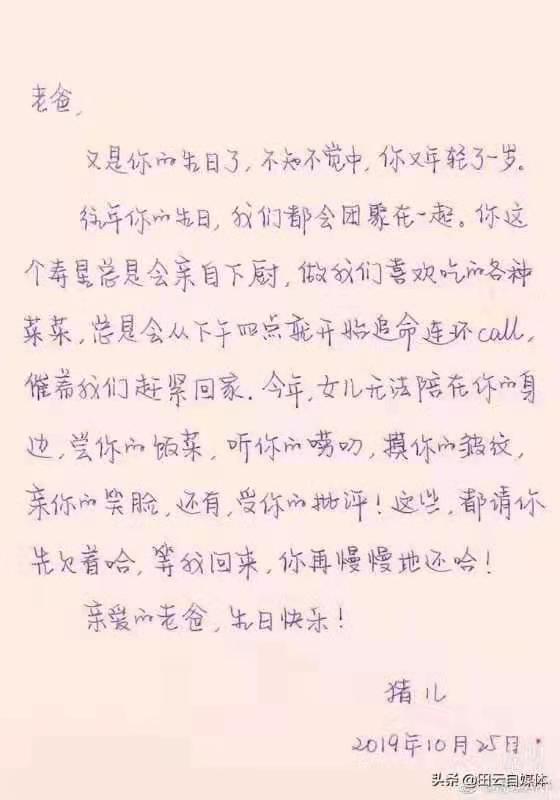 老爸，
又是你的生日了，不知不觉中，你又年轻了一岁。
往年你的生日，我们都会团聚在一起。你这
个寿星总是会亲自下厨，做我们喜欢吃的各种
菜菜，总是会从下午四点就开始追命连环call，
催着我们赶紧回家。今年，女儿无法陪在你的身
边，尝你的饭菜，听你的唠叨，摸你的皱纹，
亲你的笑脸，还有，受你的批评！这些，都请你
先欠着哈，等我回来，你再慢慢地还哈！
亲爱的老爸，生日快乐！
猪儿
2019年10月25日
头条@田云自媒体